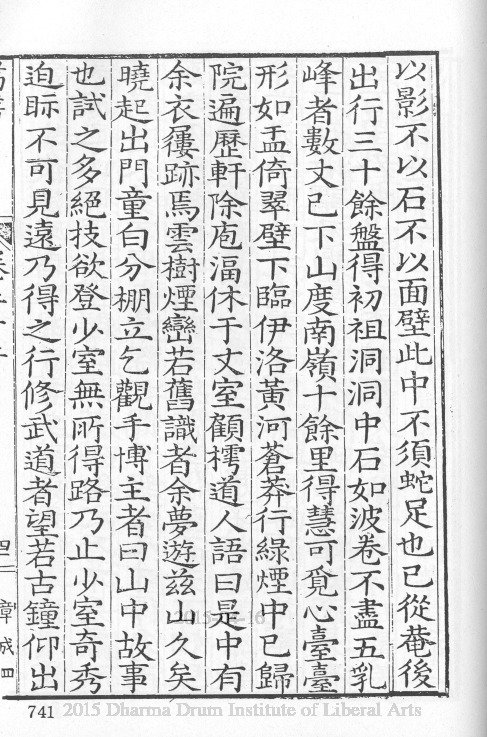 以影不以石不以面壁此中不須蛇足也已從菴後
出行三十餘盤得初祖洞洞中石如波卷不盡五乳
峰者數丈已下山度南嶺十餘里得慧可覓心臺臺
形如盂倚翠壁下臨伊洛黃河蒼莽行綠煙中已歸
院遍歷軒除庖湢休于丈室顧樗道人語曰是中有
余衣屨跡焉雲樹煙巒若舊識者余夢遊茲山久矣
曉起出門童白分棚立乞觀手博主者曰山中故事
也試之多絕技欲登少室無所得路乃止少室奇秀
迫眎不可見遠乃得之行修武道者望若古鐘仰出
章成四
741 2015 Dharma Drum Institute of Liberal Arts